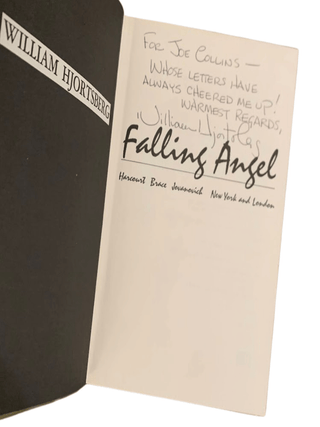 WILLIAM HJORTSBERG
FOR JOE COLLINS —
WHOSE LETTERS HAVE
ALWAYS CHEERED ME UP!
WARMEST REGARDS,
William Hjortsberg
Falling Angel
Harcourt Brace Jovanovich New York and London